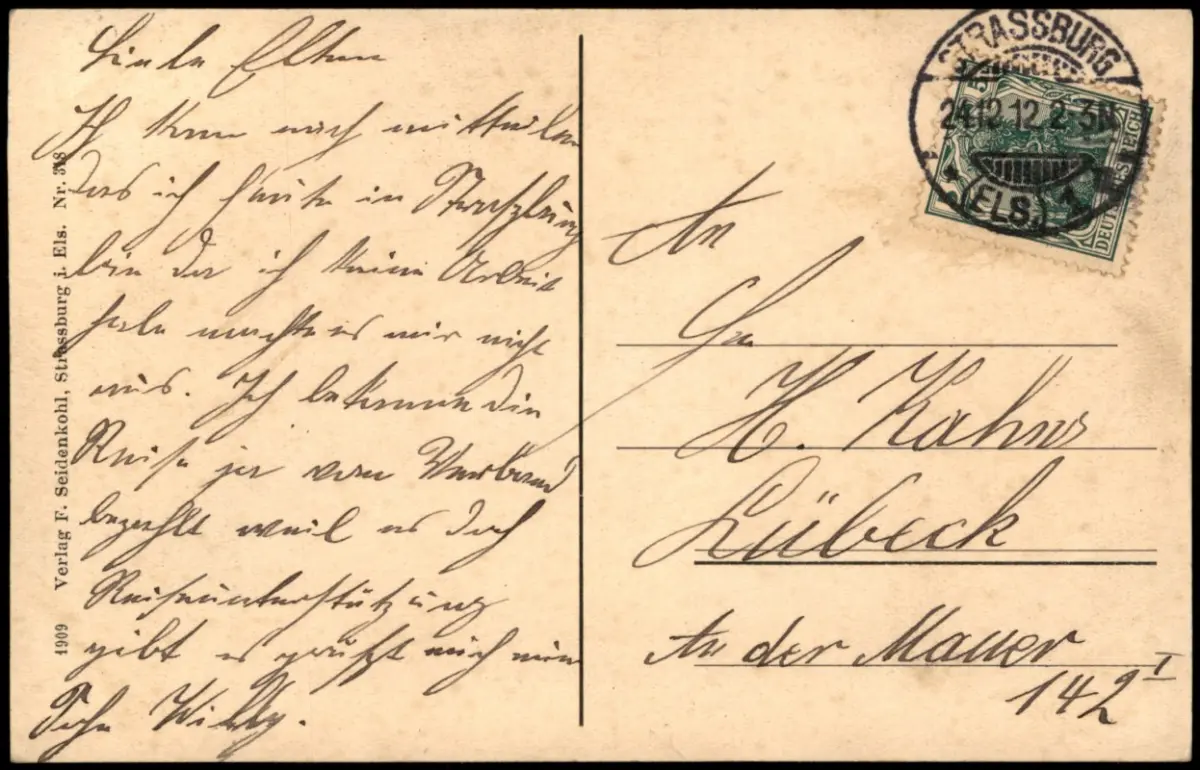 Liebe Eltern
Ich kann euch mitteilen
das ich heute in Straßburg
bin da ich keine Arbeit
habe machte es mir nicht
aus. Ich bekomme die
Reise ja vom Verband
bezahlt weil es doch
Reiseunterstützung
gibt es grüßt euch euer
Sohn Willy.
1909 Verlag F. Seidenkohl, Strassburg i. Els. Nr. 318
STRASSBURG
24.12.12.2-3N
(ELS.) 1
5
DEUTSCHES REICH
An
H. Kahns
Lübeck
An der Mauer
142 I